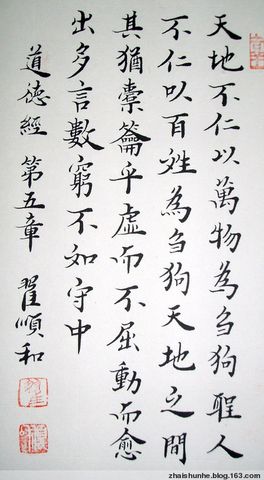 天地不仁以萬物為芻狗聖人
不仁以百姓為芻狗天地之間
其猶橐籥乎虛而不屈動而愈
出多言數窮不如守中
道德經 第五章 翟順和
zhaishunhe.blog.163.com